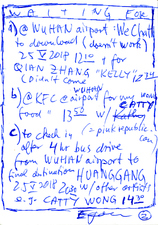 WAITING FOR
a) @ WUHAN airport: WeChat
to download (doesn't work)
25 V 2018 12¹⁰ + for
QIAN ZHANG "KELLY"
(didn't come
b) WUHAN
@ KFC @ airport for my
CATTY
food" 13⁵⁰ w/
c) to check in
after 4 hr bus drive
from WUHAN airport to
final destination HUANGGANG
25 V 2018 20³⁰ w/ other artists
e.g. CATTY WONG